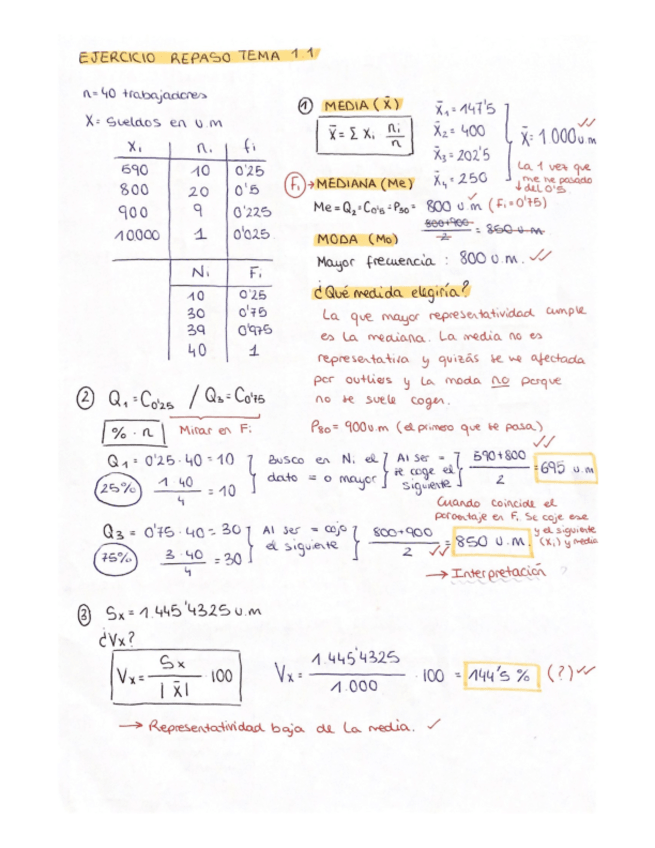 EJERCICIO REPASO TEMA 1.1
n=40 trabajadores
X= Sueldos en u.m
Xi ni fi
590 10 0'25
800 20 0'5
900 9 0'225
10.000 1 0'025
Ni Fi
10 0'25
30 0'75
39 0'975
40 1
① MEDIA (x̄)
x̄ = Σ Xi ni/n
x̄₁ = 147'5
x̄₂ = 400
x̄₃ = 202'5
x̄₄ = 250
x̄ = 1.000 u.m
La 1 vez que
me he pasado
del 0'5
Fi → MEDIANA (Me)
Me = Q₂ = C₀'₅ = P₅₀ = 800 u.m (Fi = 0'75)
800+900/2 = 850 u.m
MODA (Mo)
Mayor frecuencia : 800 u.m.
¿Qué medida elegiría?
La que mayor representatividad cumple
es la mediana. La media no es
representativa y quizás se ve afectada
por outliers y la moda no porque
no se suele coger.
P₈₀ = 900 u.m (el primero que te pasa)
② Q₁ = C₀'₂₅ / Q₃ = C₀'₇₅
% · n Mirar en Fi
Q₁ = 0'25 · 40 = 10
25% 1·40/4 = 10
Busco en Ni el
dato = o mayor
Al ser =
se coge el
siguiente
590+800/2 = 695 u.m
Cuando coincide el
porcentaje en Fi se coje ese
y el siguiente
(Xi) y media
Q₃ = 0'75 · 40 = 30
75% 3·40/4 = 30
Al ser = cojo
el siguiente
800+900/2 = 850 u.m.
→ Interpretación ?
③ Sx = 1.445'4325 u.m
¿Vx?
Vx = Sx/|x̄| · 100
Vx = 1.445'4325/1.000 · 100 = 144'5 % (?)
→ Representatividad baja de la media.